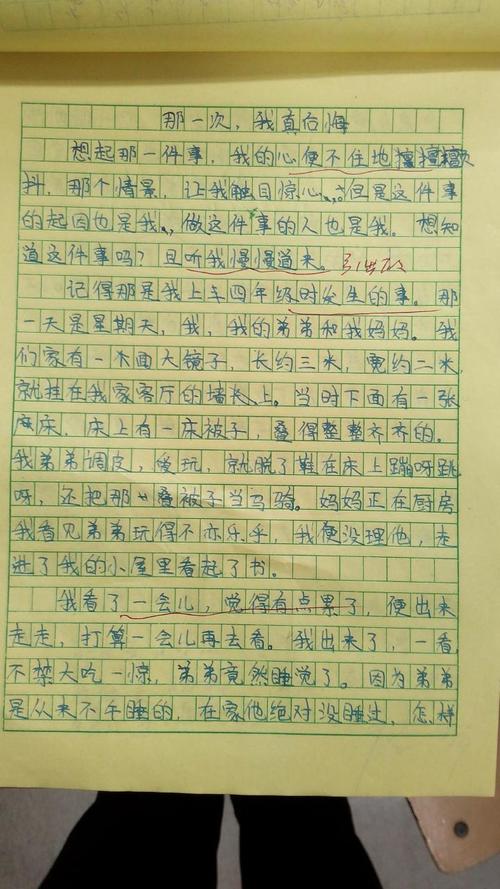 那一次，我真后悔
想起那一件事，我的心便不住地擅擅擅颤
抖，那个情景，让我触目惊心。但是这件事
的起因也是我，做这件事的人也是我。想知
道这件事吗？且听我慢慢道来。引出下文
记得那是我上车四年级时发生的事。那
一天是星期天，我，我的弟弟和我妈妈。我
们家有一木面大镜子，长约三米，宽约二米，
就挂在我家客厅的墙长上。当时下面有一张
床，床上有一床被子，叠得整整齐齐的。
我弟弟调皮，爱玩，就脱了鞋在床上蹦呀跳
呀，还把那叠被子当马骑。妈妈正在厨房
我看见弟弟玩得不亦乐乎，我便没理他，走
进了我的小屋里看起了书。
我看了一会儿，觉得有点累了，便出来
走走，打算一会儿再去看。我出来了，一看，
不禁大吃一惊，弟弟竟然睡觉了。因为弟弟
是从来不午睡的，在家他绝对没睡过，怎样